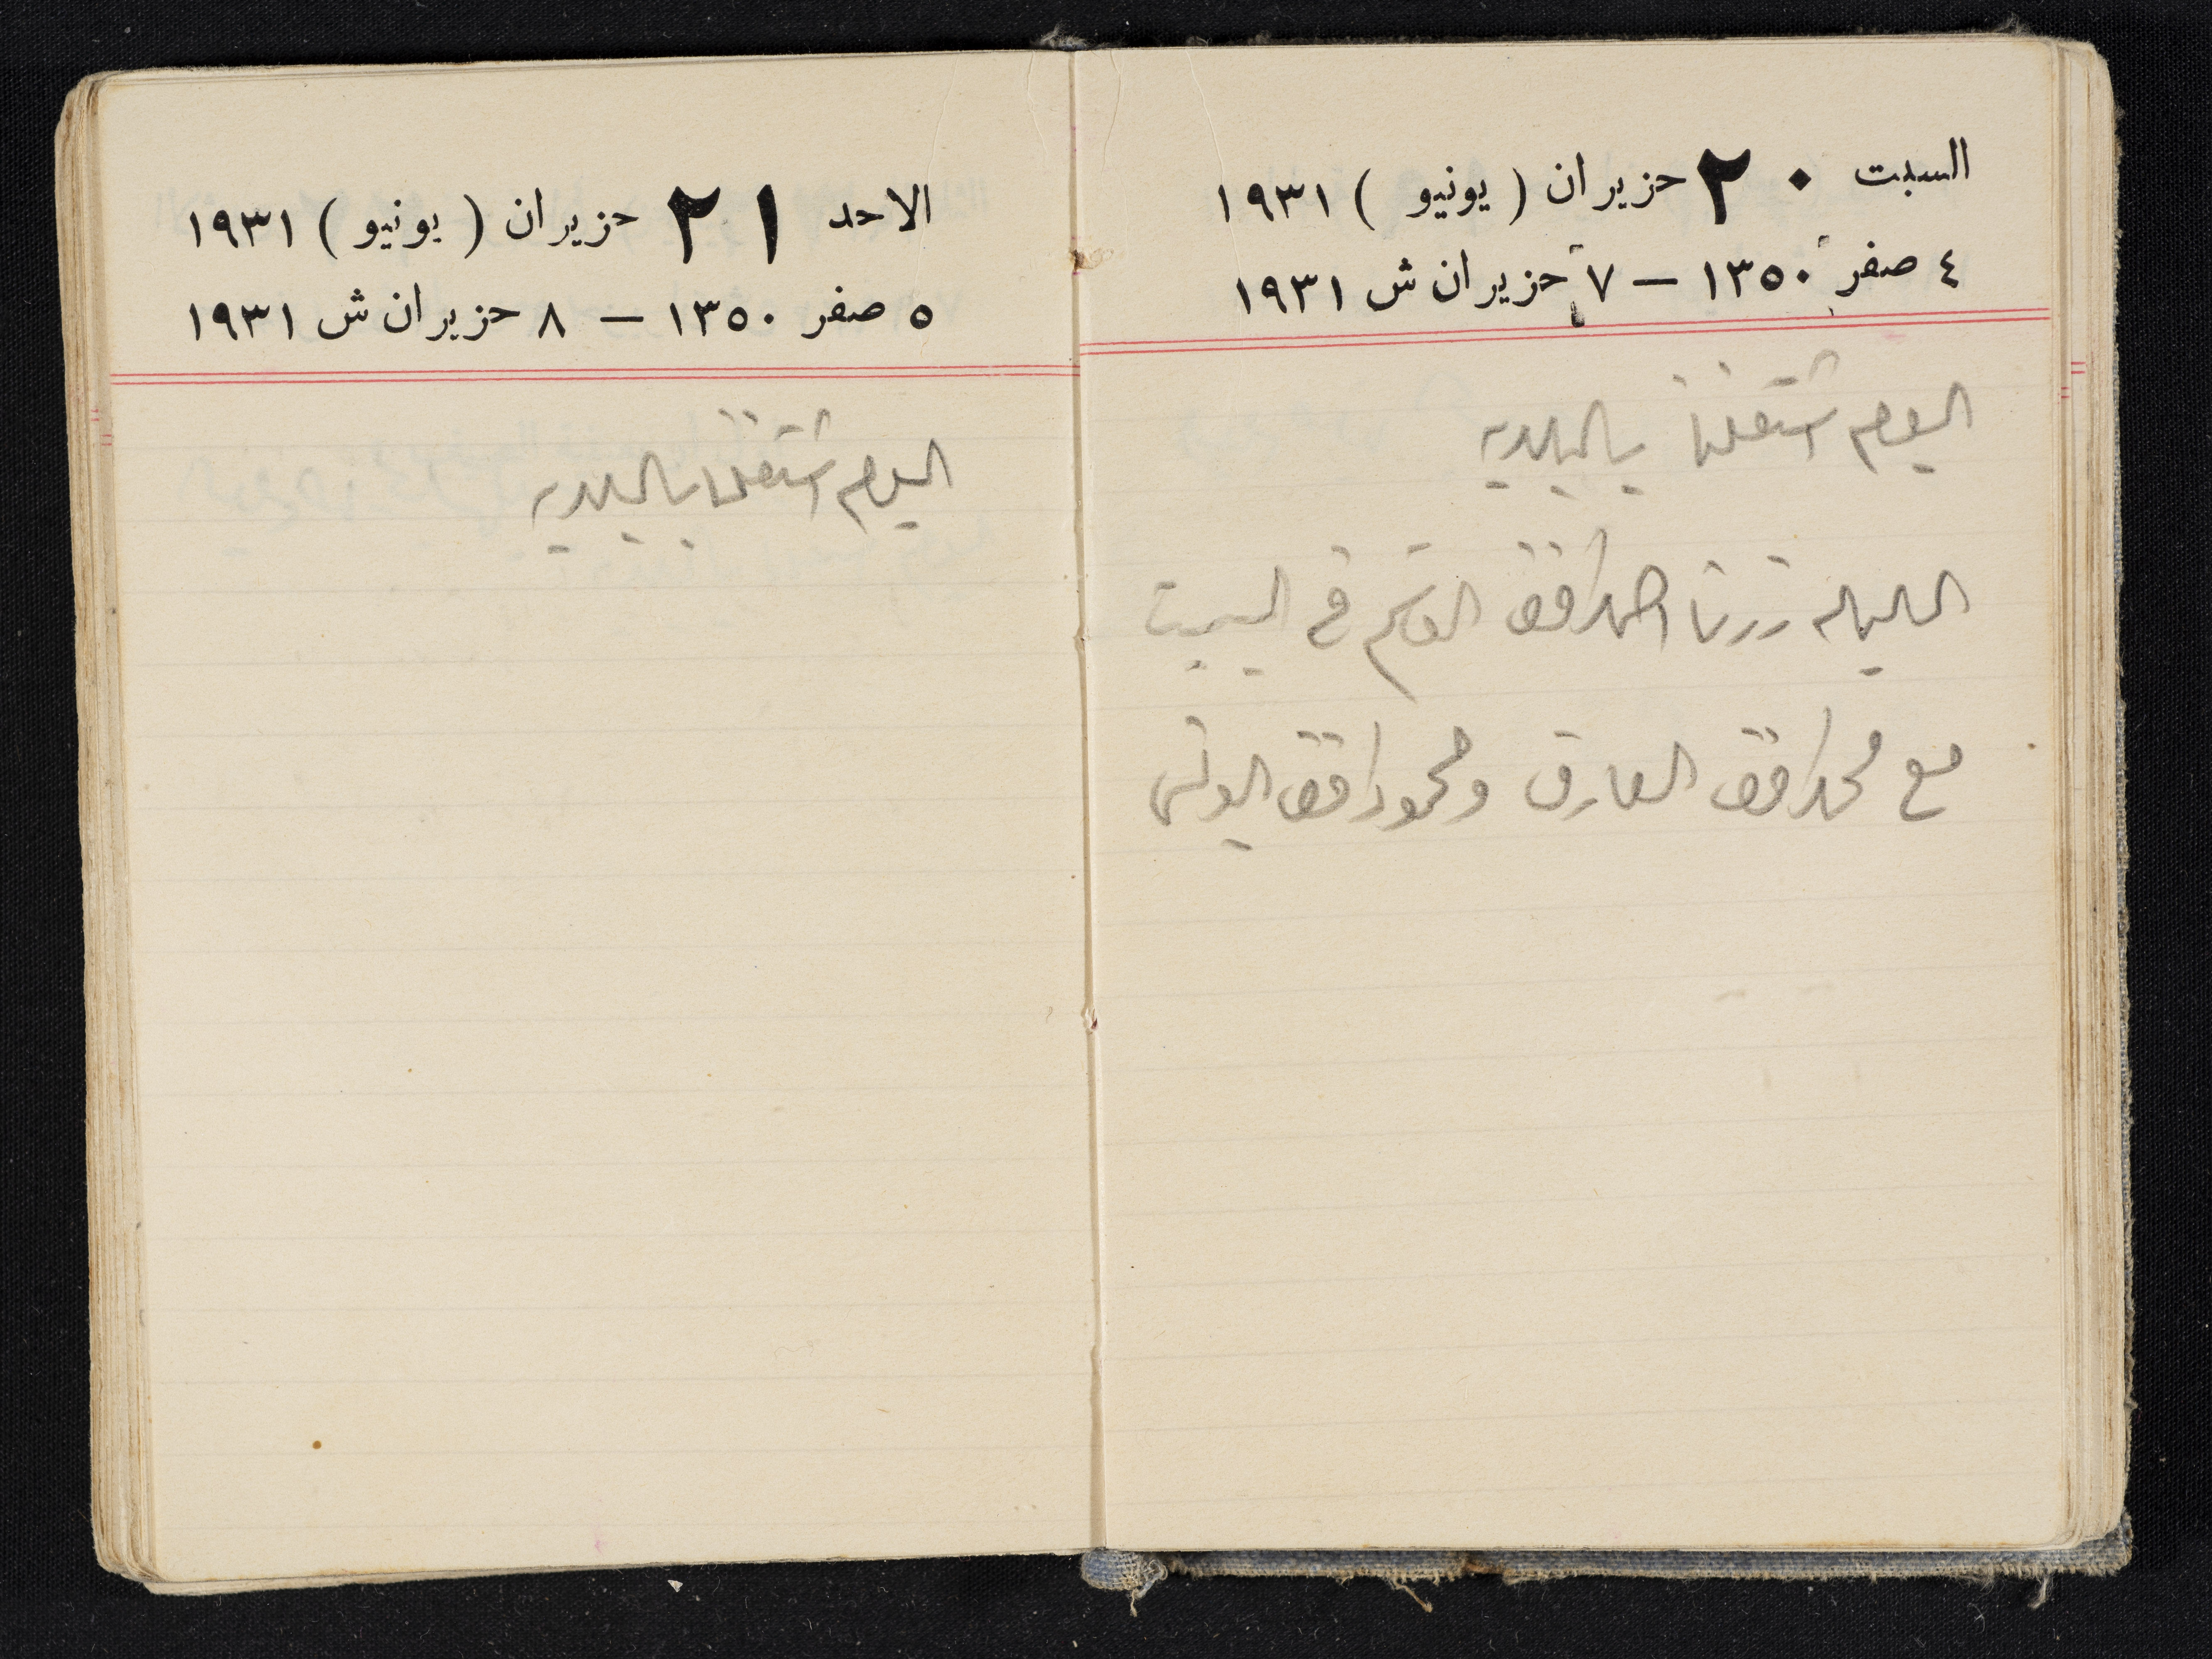 السبت ٢٠ حزيران ( يونيو ) ١٩٣١
٤ صفر ١٣٥٠ — ٧ حزيران ش ١٩٣١
اليوم اشتغلنا بالبلديه
الليله زرنا احمد افندي القاسم في البيت
مع محمد افندي العارف ومحمود افندي
الاحد ٢١ حزيران ( يونيو ) ١٩٣١
٥ صفر ١٣٥٠ — ٨ حزيران ش ١٩٣١
اليوم اشتغلنا بالبلديه